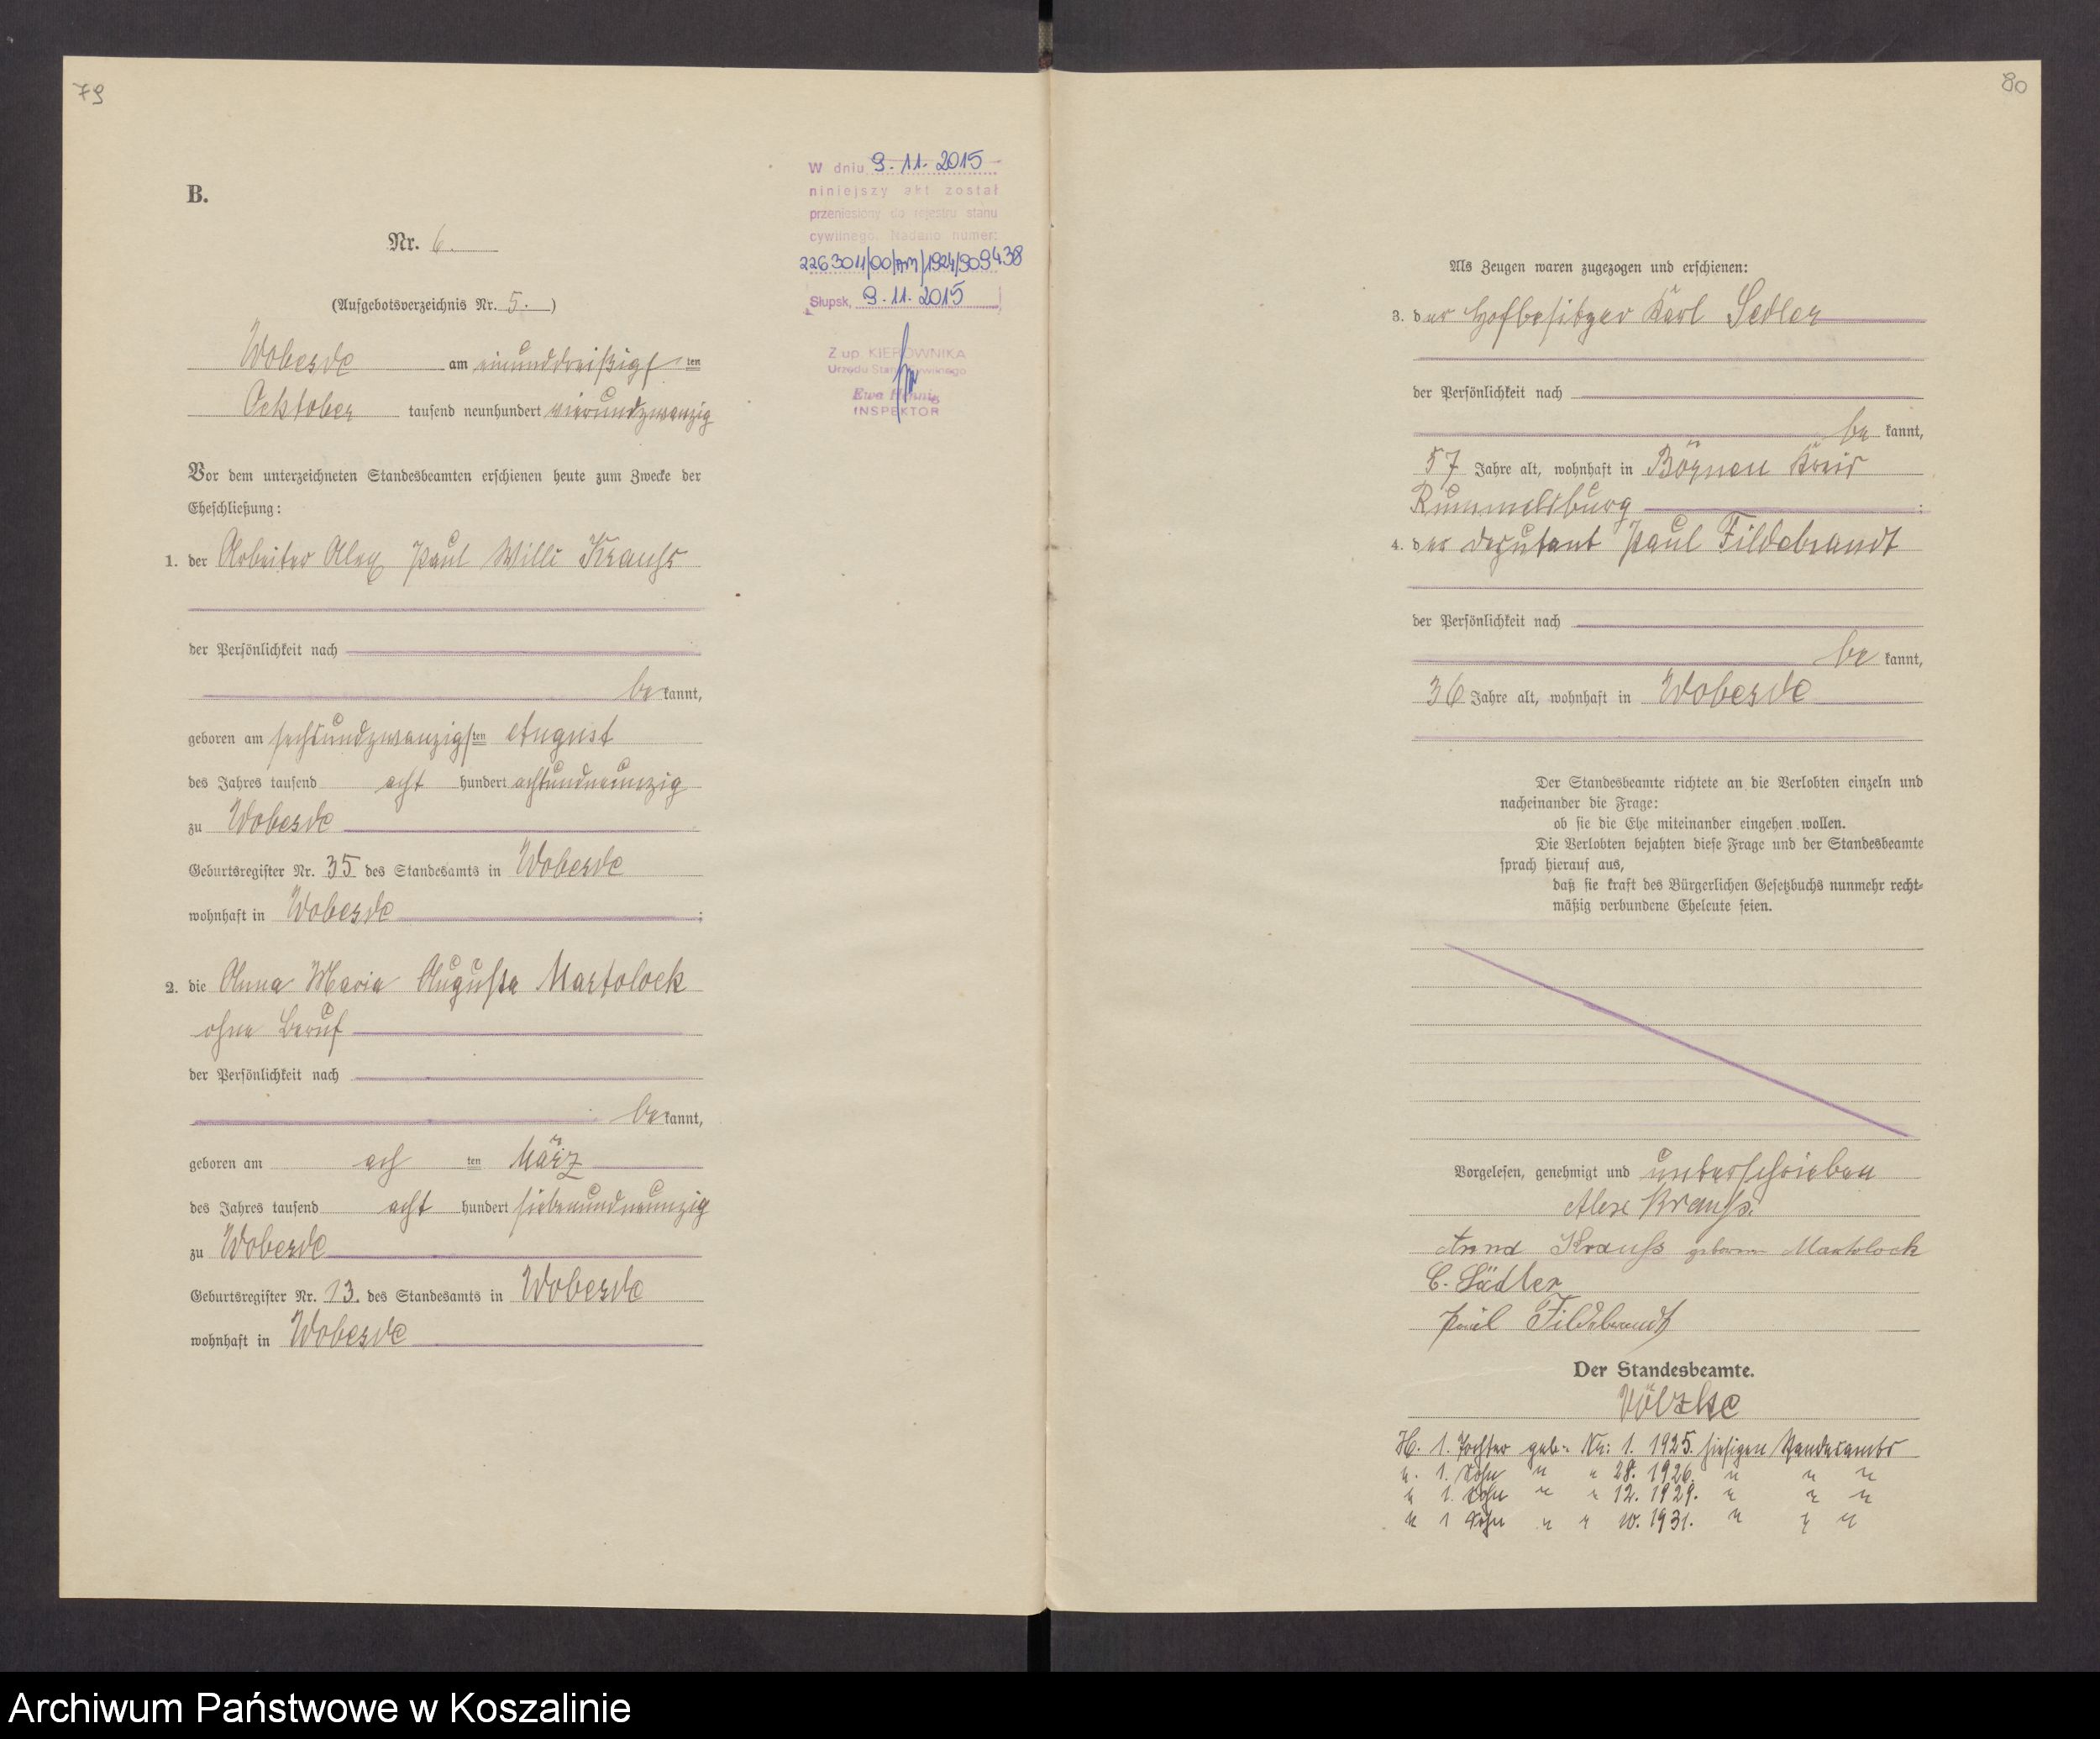 79
B.
Nr. 6.
(Aufgebotsverzeichnis Nr. 5. )
Wobesde am einunddreißigsten
Ocktober tausend neunhundert vierundzwanzig
Vor dem unterzeichneten Standesbeamten erschienen heute zum Zwecke der
Eheschließung:
1. der Arbeiter Alex Paul Willi Krauß
der Persönlichkeit nach
bekannt,
geboren am sechsundzwanzigsten August
des Jahres tausend acht hundert achtundneunzig
zu Wobesde
Geburtsregister Nr. 35 des Standesamts in Wobesde
wohnhaft in Wobesde ;
2. die Anna Maria Augusta Martolock
ohne Beruf
der Persönlichkeit nach
bekannt,
geboren am achten März
des Jahres tausend acht hundert siebenundneunzig
zu Wobesde
Geburtsregister Nr. 13. des Standesamts in Wobesde
wohnhaft in Wobesde
W dniu 9.11.2015
niniejszy akt został
przeniesiony do rejestru stanu
cywilnego. Nadano numer:
2263011/00/AM/1924/909438
Słupsk, 9.11.2015
Z up. KIEROWNIKA
Urzędu Stanu Cywilnego
Ewa Hennig
INSPEKTOR
80
Als Zeugen waren zugezogen und erschienen:
3. der Hofbesitzer Karl Sedler
der Persönlichkeit nach
bekannt,
57 Jahre alt, wohnhaft in Börnen Kreis
Rummelsburg ;
4. der Deputant Paul Fildebrandt
der Persönlichkeit nach
bekannt,
36 Jahre alt, wohnhaft in Wobesde
Der Standesbeamte richtete an die Verlobten einzeln und
nacheinander die Frage:
ob sie die Ehe miteinander eingehen wollen.
Die Verlobten bejahten diese Frage und der Standesbeamte
sprach hierauf aus,
daß sie kraft des Bürgerlichen Gesetzbuchs nunmehr recht-
mäßig verbundene Eheleute seien.
Vorgelesen, genehmigt und unterschrieben
Alex Krauß.
Anna Krauß geborene Martolock
C. Sädler
Paul Fildebrandt
Der Standesbeamte.
Völzke
H. 1. Tochter geb. Nr: 1. 1925. hiesigen Standesamts
" 1. Sohn " " 28. 1926. " " "
" 1. Sohn " " 12. 1929. " " "
" 1 Sohn " " 10. 1931. " " "
Archiwum Państwowe w Koszalinie